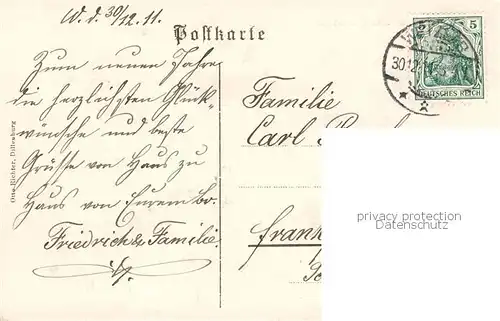 W. d. 30/12. 11.
Postkarte
Zum neuen Jahre
die herzlichsten Glück-
wünsche und beste
Grüsse von Haus zu
Haus von Eurem
Friedrich & Familie.
Otto Richter, Dillenburg
5
30.12
DEUTSCHES REICH
Familie
Carl
privacy protection
Datenschutz